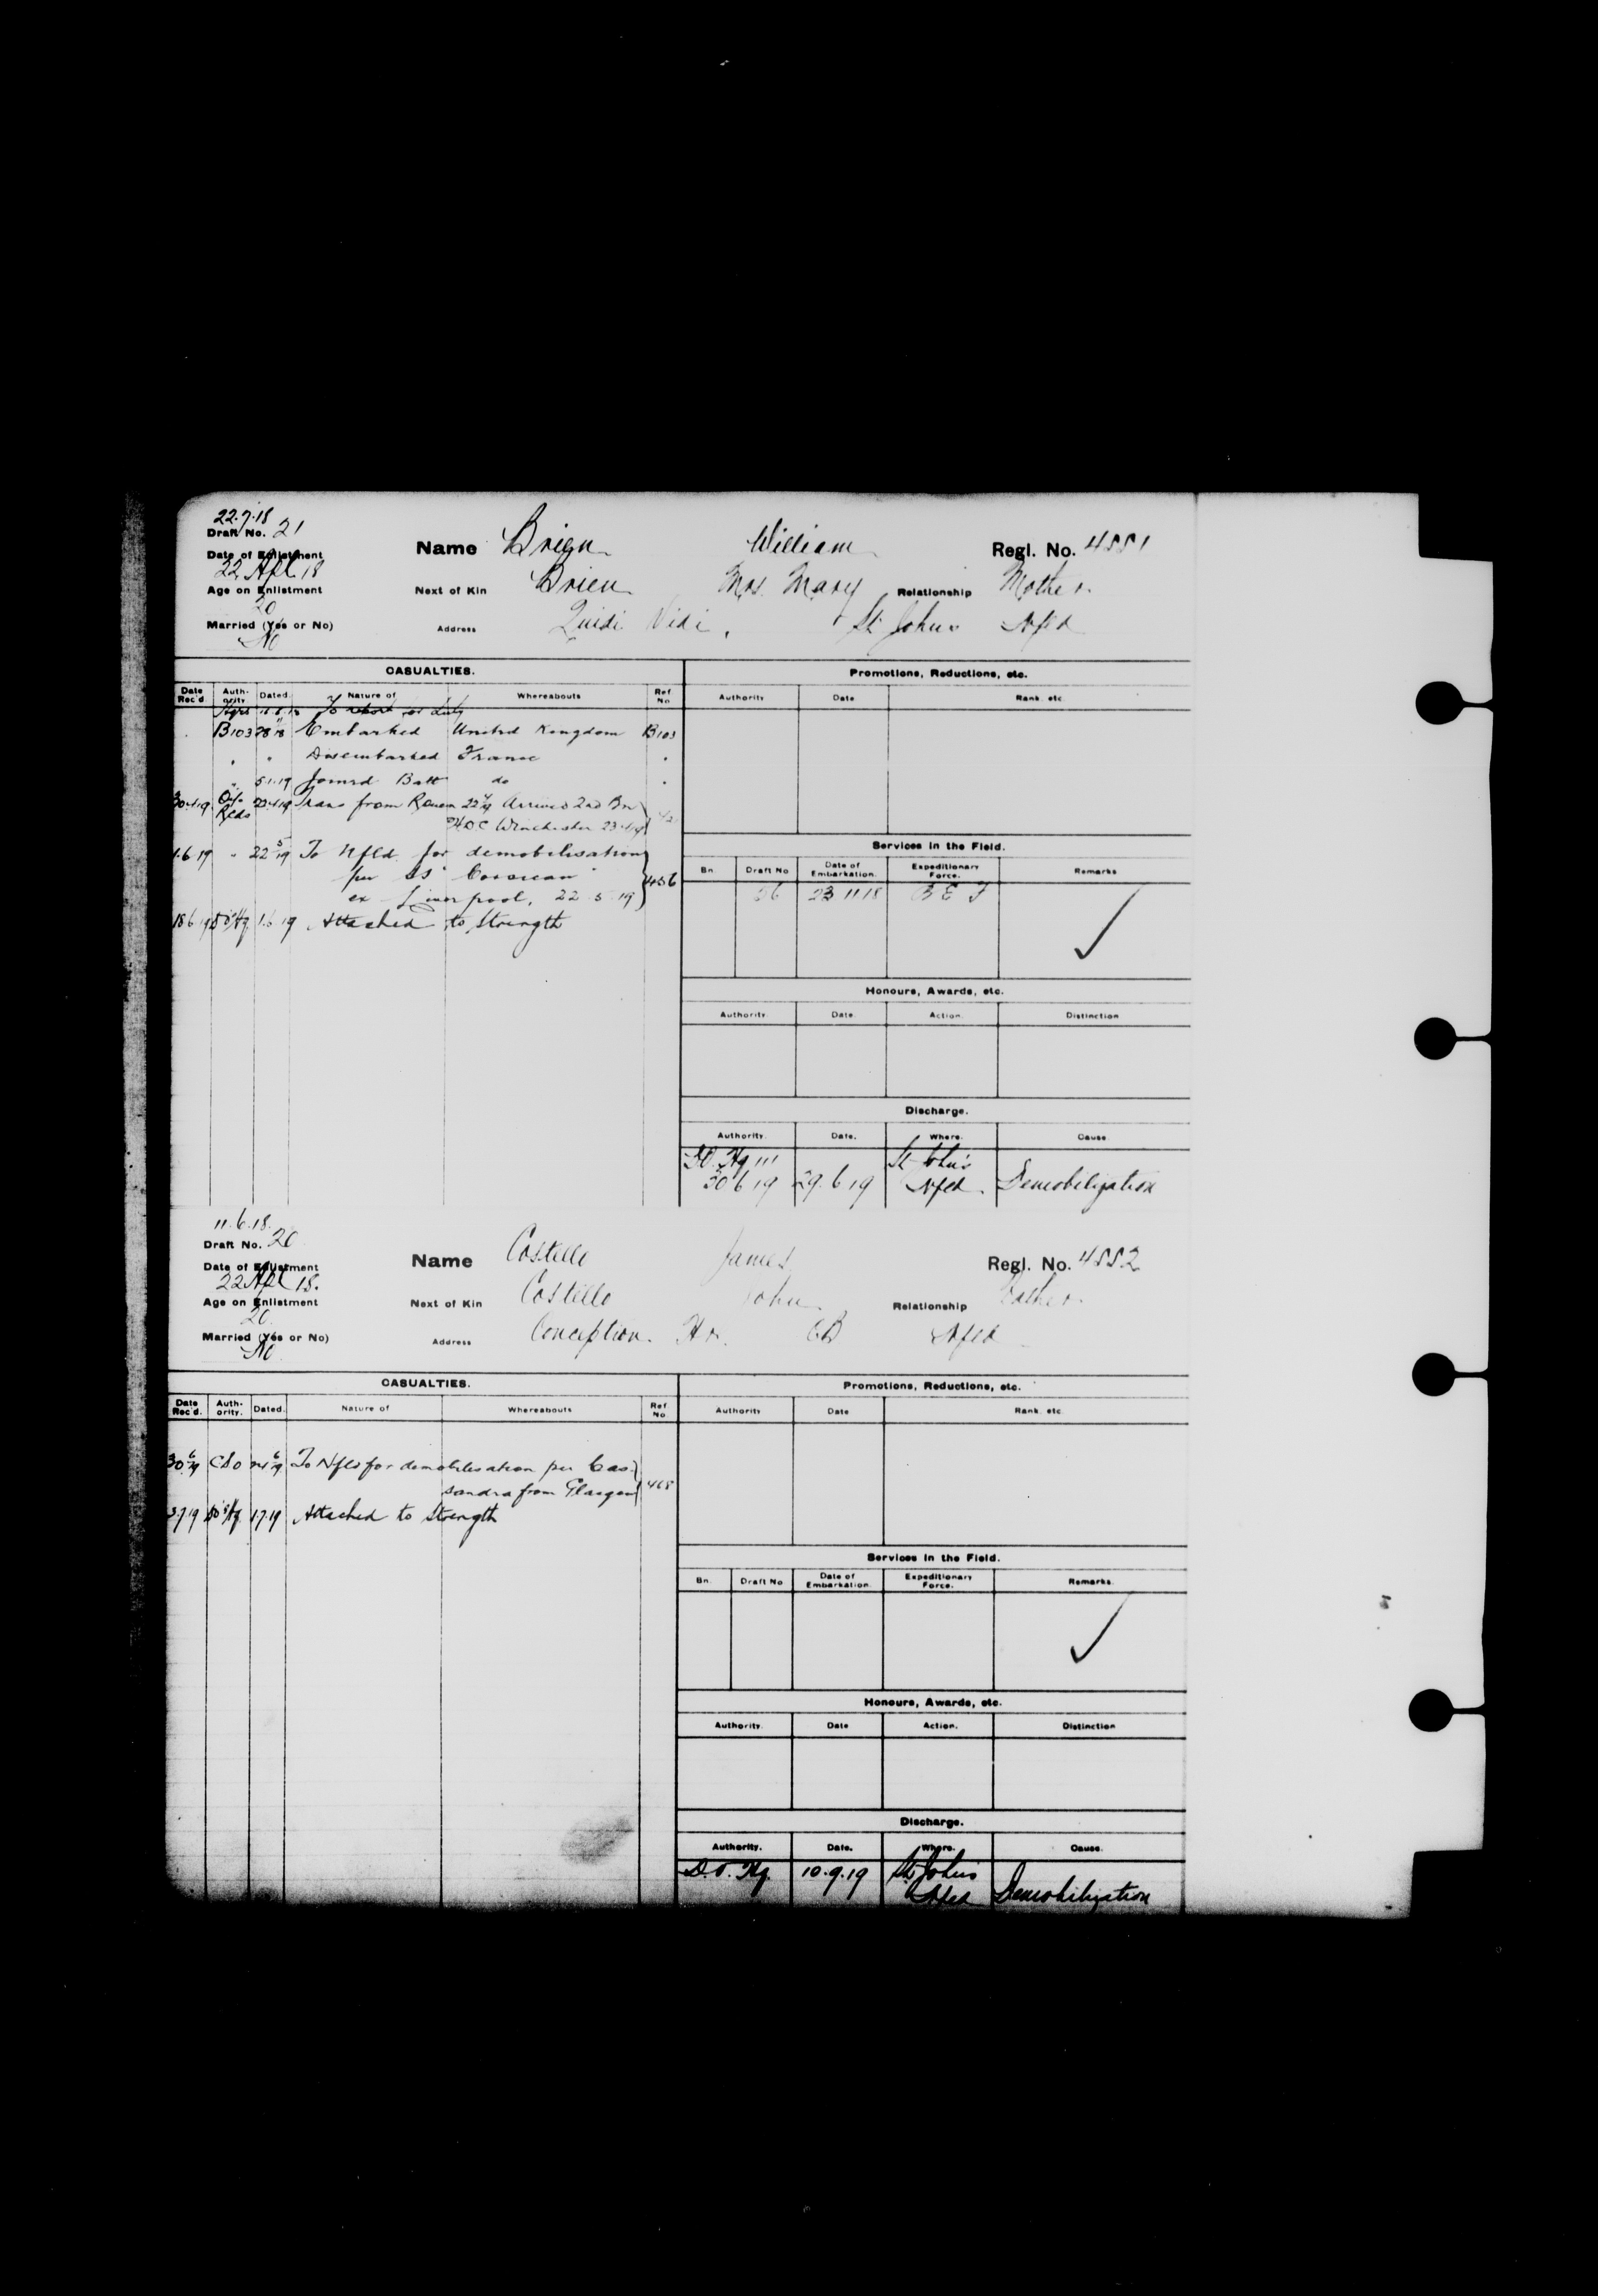 22.7.18
Draft No. 21
Date of Enlistment
22 Apl 18
Age on Enlistment
20
Married (Yes or No)
No
Name Brien William Regl. No. 4551
Next of Kin Brien Mrs. Mary Relationship Mother
Address Quidi Vidi, St Johns Nfld
CASUALTIES.
Date Rec'd Auth-ority Dated. Nature of Whereabouts Ref No
To report for duty
B103 28 11 18 Embarked United Kingdom B103
" " Disembarked France "
" 5.1.19 Joined Batt do "
30.4.19 Off. Rcds 23.4.19 Trans from Rouen 22/4/19 Arrived 2nd Bn
H.D.C Winchester 23.4.19
1.6.19 " 22 5 19 To Nfld. for demobilisation
per SS "Corsican" 456
ex Liverpool, 22.5.19
18.6.19 DO Hq 1.6.19 Attached to Strength
Promotions, Reductions, etc.
Authority Date Rank. etc.
Services in the Field.
Bn. Draft No Date of Embarkation. Expeditionary Force. Remarks
56 23 11 18 B E F
Honours, Awards, etc.
Authority. Date. Action. Distinction
Discharge.
Authority. Date. Where. Cause
D.O. Hq 111 St John's
30 6 19 29.6.19 Nfld. Demobilization
11.6.18.
Draft No. 20
Date of Enlistment
22 Apl 18.
Age on Enlistment
20
Married (Yes or No)
No
Name Costello James Regl. No. 4552
Next of Kin Costello John Relationship Father
Address Conception Hr. CB Nfld
CASUALTIES.
Date Rec'd. Auth-ority. Dated. Nature of Whereabouts Ref No.
30 6 19 CSO 24 6 19 To Nfld for demobilisation per Cas-
sandra from Glasgow 468
3.7.19 DO Hq 1.7.19 Attached to Strength
Promotions, Reductions, etc.
Authority Date Rank. etc.
Services in the Field.
Bn. Draft No Date of Embarkation. Expeditionary Force. Remarks.
Honours, Awards, etc.
Authority. Date Action. Distinction
Discharge.
Authority. Date. Where. Cause.
D.O. Hq. 10.9.19 St John's
Nfld Demobilization